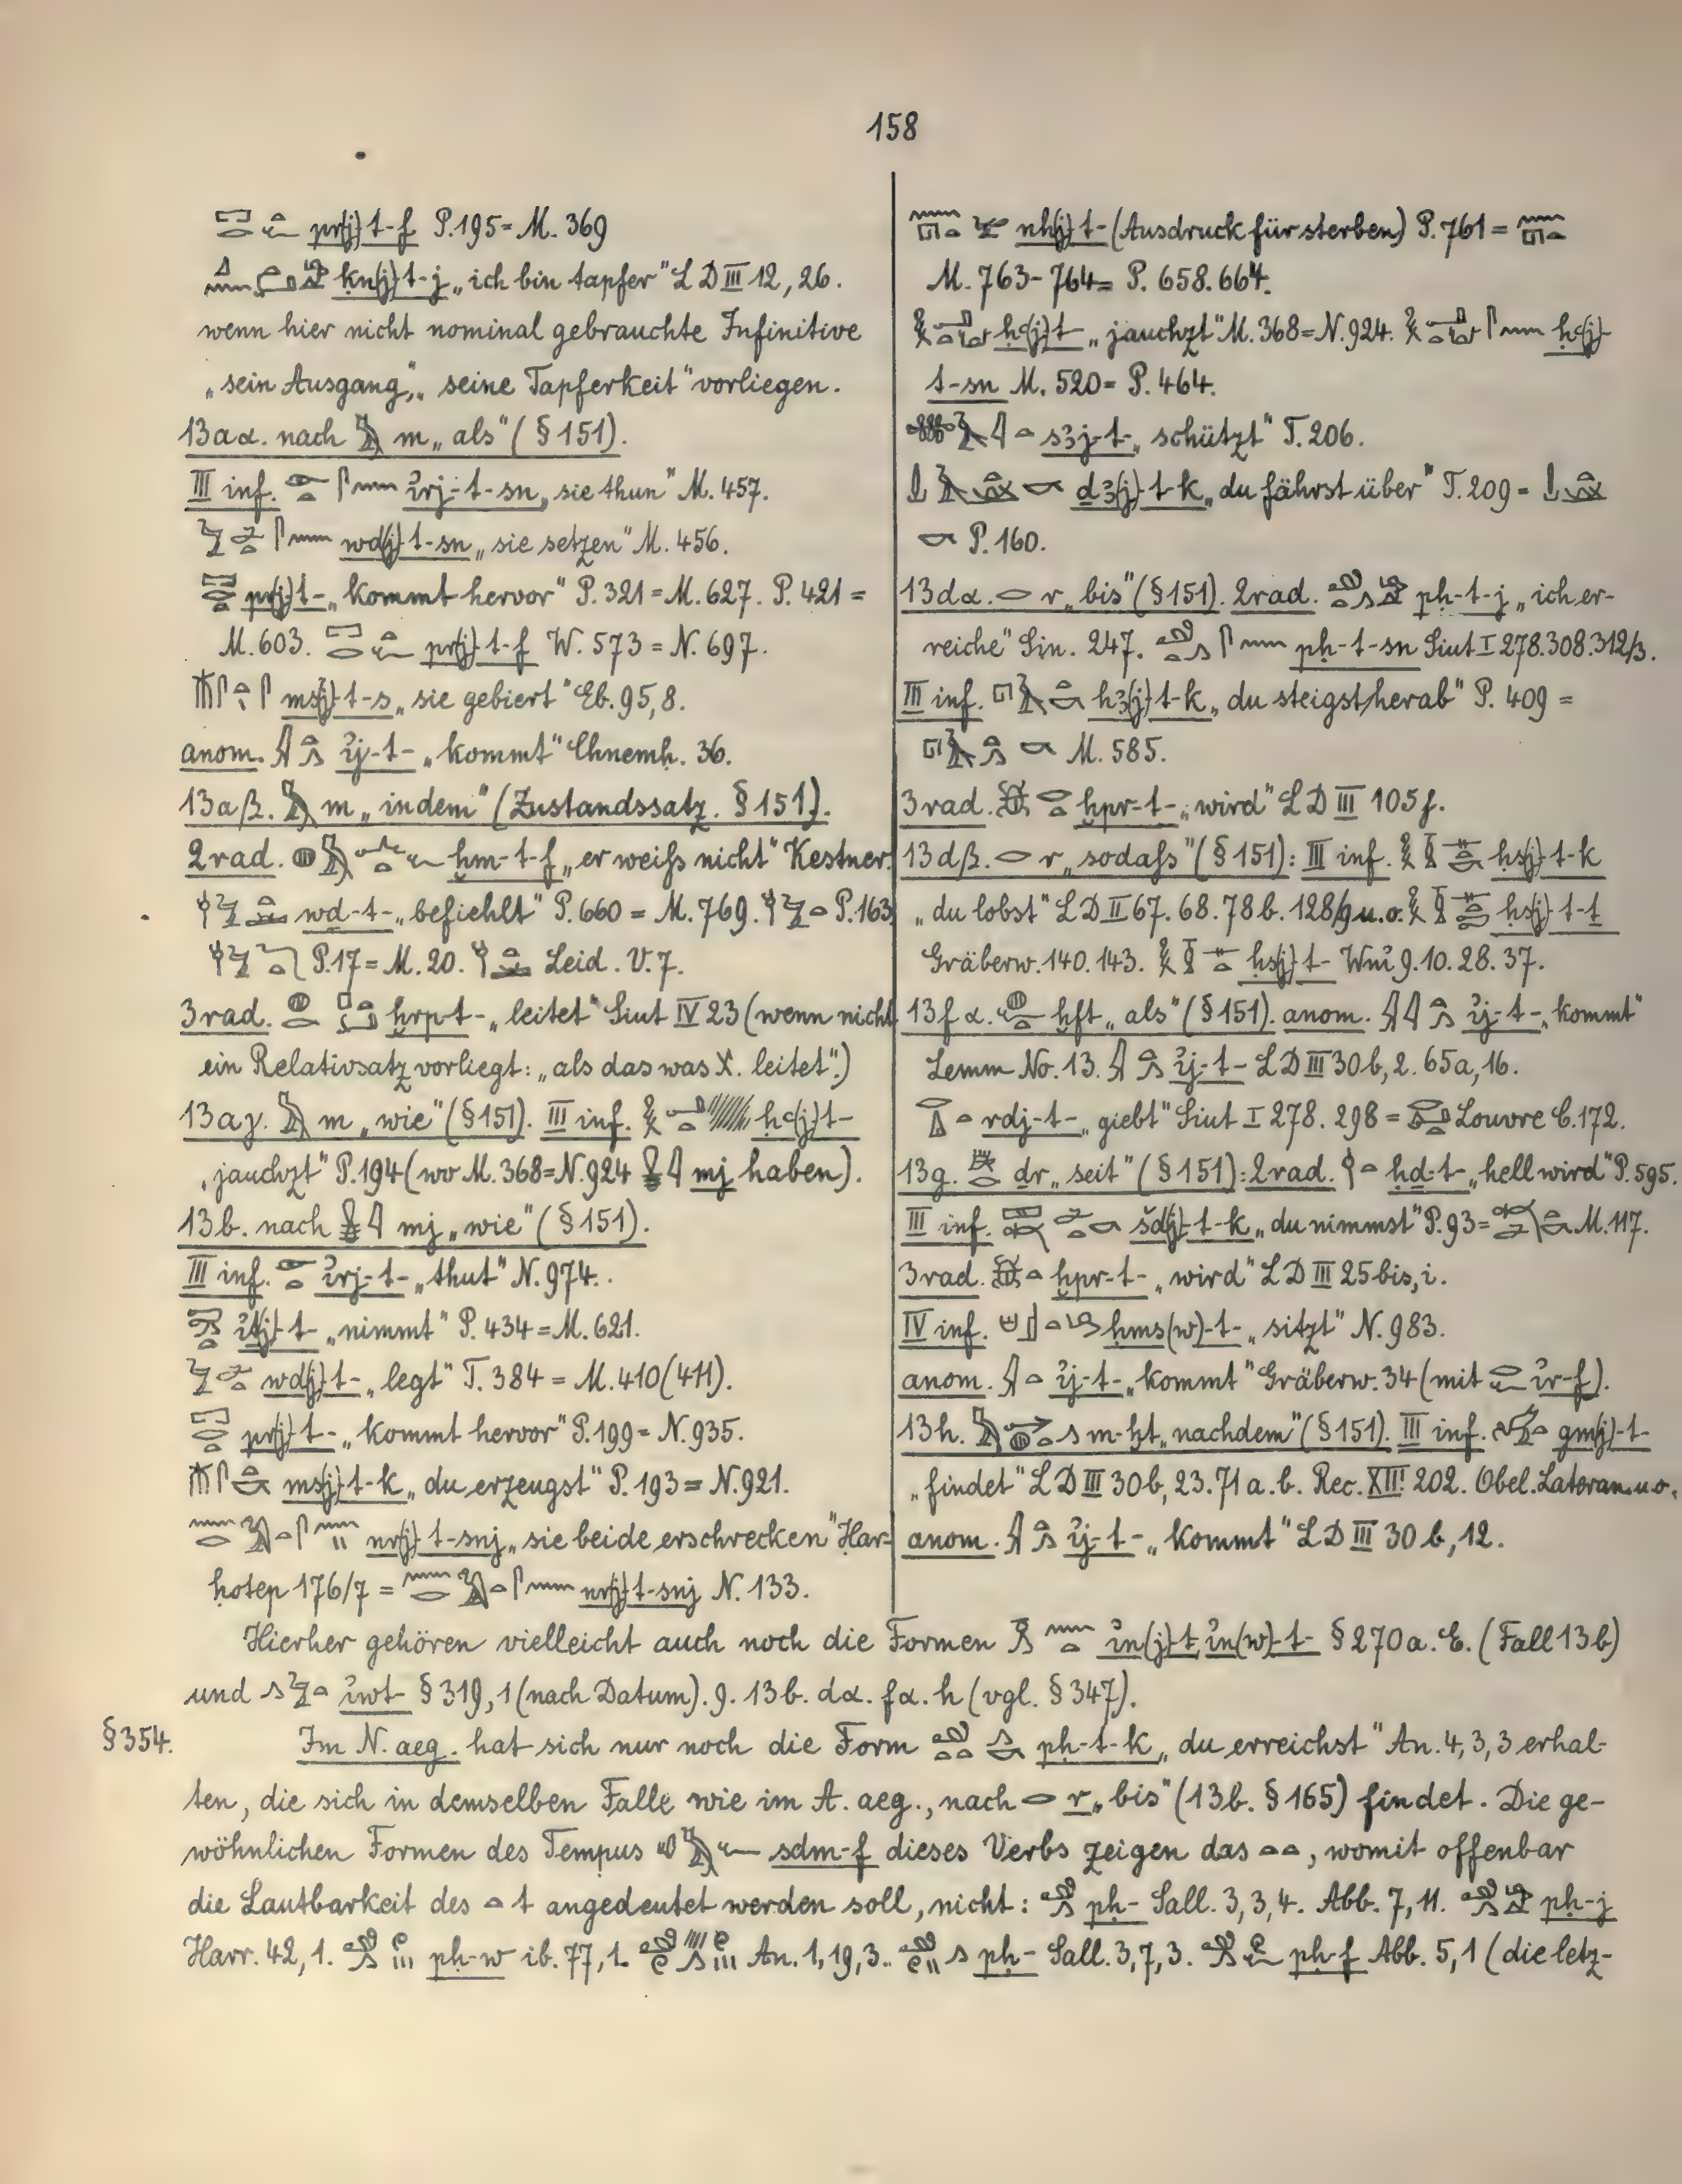 158
pr(j)-t-f P. 195 = M. 369
ḳn(j)-t-j „ich bin tapfer" LD III 12, 26.
wenn hier nicht nominal gebrauchte Infinitive
„sein Ausgang", „seine Tapferkeit" vorliegen.
13aα. nach m „als" (§ 151).
III inf. ı͗rj-t-sn „sie thun" M. 457.
wd(j)-t-sn „sie setzen" M. 456.
pr(j)-t- „kommt hervor" P. 321 = M. 627. P. 421 =
M. 603. pr(j)-t-f W. 573 = N. 697.
ms(j)-t-s „sie gebiert" Eb. 95, 8.
anom. ı͗j-t- „kommt" Chnemḥ. 36.
13aβ. m „indem" (Zustandssatz. § 151).
2rad. ḫm-t-f „er weiſs nicht" Kestner.
wḏ-t- „befiehlt" P. 660 = M. 769. P. 163
P. 17 = M. 20. Leid. V. 7.
3rad. ḫrp-t- „leitet" Siut IV 23 (wenn nicht
ein Relativsatz vorliegt: „als das was X. leitet".)
13aγ. m „wie" (§ 151). III inf. ḥꜥ(j)t-
„jauchzt" P. 194 (wo M. 368 = N. 924 mj haben).
13b. nach mj „wie" (§ 151).
III inf. ı͗rj-t- „thut" N. 974.
ı͗ṯ(j)-t- „nimmt" P. 434 = M. 621.
wd(j)-t- „legt" T. 384 = M. 410 (411).
pr(j)-t- „kommt hervor" P. 199 = N. 935.
ms(j)-t-k „du erzeugst" P. 193 = N. 921.
nr(j)-t-snj „sie beide erschrecken" Har-
ḥotep 176/7 = nr(j)-t-snj N. 133.
nh(j)-t- (Ausdruck für sterben) P. 761 =
M. 763-764 = P. 658. 664.
ḥꜥ(j)t- „jauchzt" M. 368 = N. 924. ḥꜥ(j)-
t-sn M. 520 = P. 464.
sꜣj-t- „schützt" T. 206.
ḏꜣ(j)-t-k „du fährst über" T. 209 =
P. 160.
13dα. r „bis" (§ 151). 2rad. pḥ-t-j „ich er-
reiche" Sin. 247. pḥ-t-sn Siut I 278. 308. 312/3.
III inf. hꜣ(j)-t-k „du steigst herab" P. 409 =
M. 585.
3rad. ḫpr-t- „wird" LD III 105f.
13dβ. r „sodaſs" (§ 151): III inf. ḥs(j)-t-k
„du lobst" LD II 67. 68. 78b. 128/9 u. o. ḥs(j)-t-ṯ
Gräberw. 140. 143. ḥs(j)-t- Wnı͗ 9. 10. 28. 37.
13fα. ḫft „als" (§ 151). anom. ı͗j-t- „kommt"
Lemm No. 13. ı͗j-t- LD III 30b, 2. 65a, 16.
rdj-t- „giebt" Siut I 278. 298 = Louvre C. 172.
13g. ḏr „seit" (§ 151): 2rad. ḥḏ-t- „hell wird" P. 595.
III inf. šd(j)-t-k „du nimmst" P. 93 = M. 117.
3rad. ḫpr-t- „wird" LD III 25 bis, i.
IV inf. ḥms(w)-t- „sitzt" N. 983.
anom. ı͗j-t- „kommt" Gräberw. 34 (mit ı͗r-f).
13h. m-ḫt „nachdem" (§ 151). III inf. gm(j)-t-
„findet" LD III 30b, 23. 71a. b. Rec. XII. 202. Obel. Lateran. u. o.
anom. ı͗j-t- „kommt" LD III 30b, 12.
Hierher gehören vielleicht auch noch die Formen ı͗n(j)-t, ı͗n(w)-t- § 270a. E. (Fall 13b)
und ı͗wt- § 319, 1 (nach Datum). 9. 13b. dα. fα. h (vgl. § 347).
§ 354. Im N. aeg. hat sich nur noch die Form pḥ-t-k „du erreichst" An. 4, 3, 3 erhal-
ten, die sich in demselben Falle wie im A. aeg., nach r „bis" (13b. § 165) findet. Die ge-
wöhnlichen Formen des Tempus sḏm-f dieses Verbs zeigen das , womit offenbar
die Lautbarkeit des t angedeutet werden soll, nicht: pḥ- Sall. 3, 3, 4. Abb. 7, 11. pḥ-j
Harr. 42, 1. pḥ-w ib. 77, 1. An. 1, 19, 3. pḥ- Sall. 3, 7, 3. pḥ-f Abb. 5, 1 (die letz-